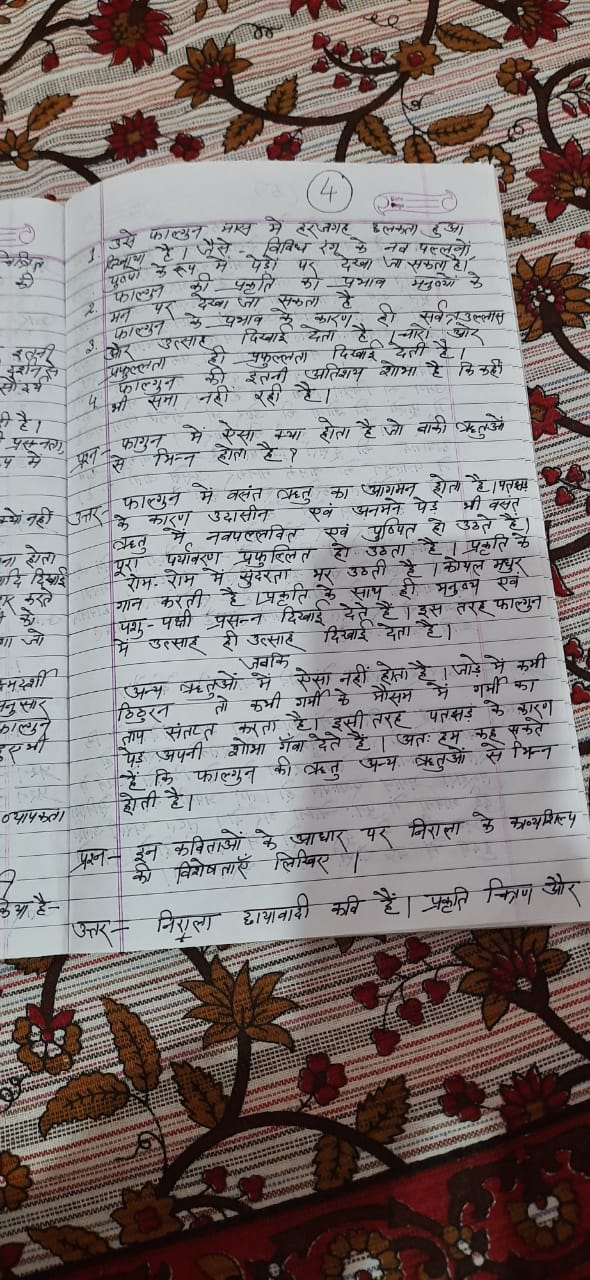 4
उसे फाल्गुन मास में हरजगह झलकता हुआ
1. दिखाया है। जैसे - विविध रंग के नव पल्लवों,
पुष्पों के रूप में पेड़ों पर देखा जा सकता है।
2. फाल्गुन की प्रकृति का प्रभाव मनुष्यों के
मन पर देखा जा सकता है
3. फाल्गुन के प्रभाव के कारण ही सर्वत्र उल्लास
और उत्साह दिखाई देता है। चारों और
प्रफुल्लता ही प्रफुल्लता दिखाई देती है।
4. फाल्गुन की इतनी अतिशय शोभा है कि कहीं
भी समा नहीं रही है।
प्रश्न - फागुन में ऐसा क्या होता है जो बाकी ऋतुओं
से भिन्न होता है ?
उत्तर - फाल्गुन में वसंत ऋतु का आगमन होता है। पतझड़
के कारण उदासीन एवं अनमन पेड़ भी वसंत
ऋतु में नवपल्लवित एवं पुष्पित हो उठते हैं।
पूरा पर्यावरण प्रफुल्लित हो उठता है। प्रकृति के
रोम-रोम में सुंदरता भर उठती है। कोयल मधुर
गान करती है। प्रकृति के साथ ही मनुष्य एवं
पशु-पक्षी प्रसन्न दिखाई देते हैं। इस तरह फाल्गुन
में उत्साह ही उत्साह दिखाई देता है।
जबकि
अन्य ऋतुओं में ऐसा नहीं होता है। जाड़े में कभी
ठिठुरन तो कभी गर्मी के मौसम में गर्मी का
ताप संतप्त करता है। इसी तरह पतझड़ के कारण
पेड़ अपनी शोभा गँवा देते हैं। अतः हम कह सकते
हैं कि फाल्गुन की ऋतु अन्य ऋतुओं से भिन्न
होती है।
प्रश्न - इन कविताओं के आधार पर निराला के काव्यशिल्प
की विशेषताएँ लिखिए ।
उत्तर - निराला छायावादी कवि हैं। प्रकृति चित्रण और